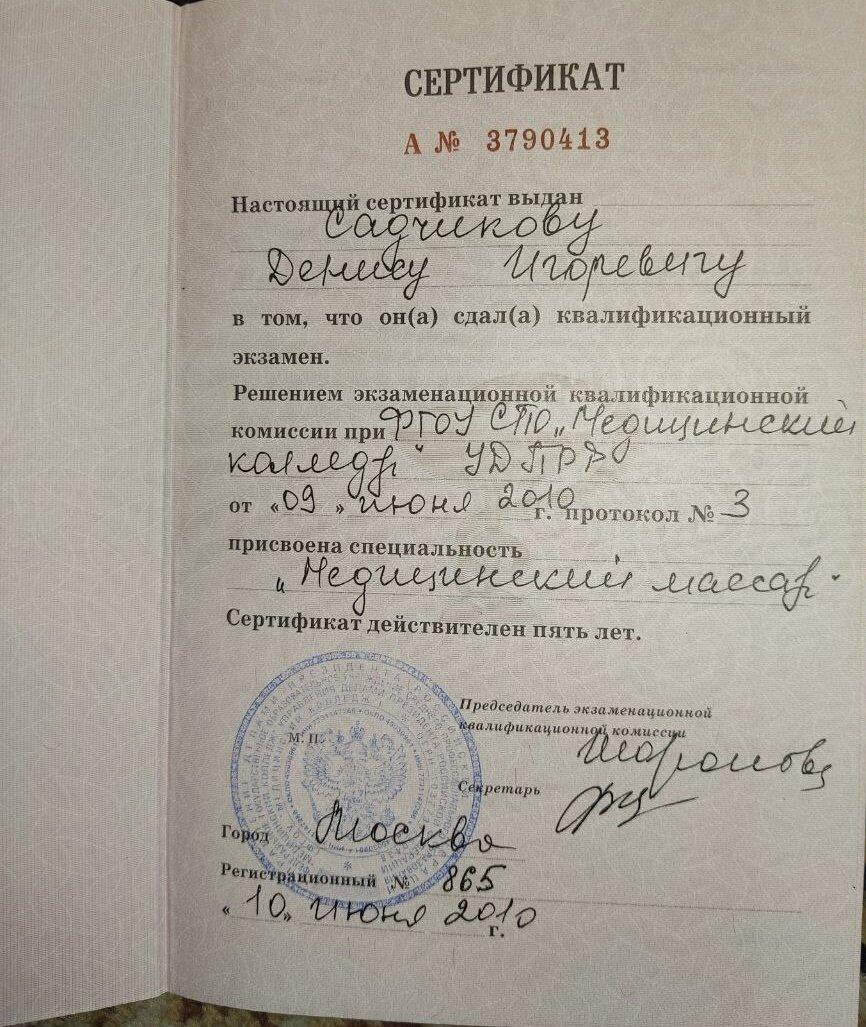 СЕРТИФИКАТ
А № 3790413
Настоящий сертификат выдан
Садчикову
Денису Игоревичу
в том, что он(а) сдал(а) квалификационный
экзамен.
Решением экзаменационной квалификационной
комиссии при ФГОУ СПО „Медицинский
колледж" УДПРФ
от «09» июня 2010 г. протокол № 3
присвоена специальность
„Медицинский массаж"
Сертификат действителен пять лет.
Председатель экзаменационной
квалификационной комиссии
М. П.
Секретарь
Город Москва
Регистрационный № 865
«10» июня 2010 г.